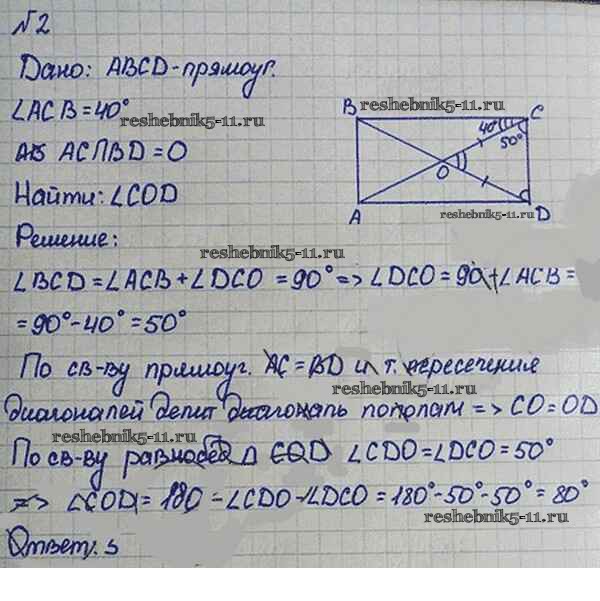 №2
Дано: ABCD-прямоуг.
∠ACB=40°
reshebnik5-11.ru
AC∩BD=O
Найти: ∠COD
B reshebnik5-11.ru C
40°
50°
O
A reshebnik5-11.ru D
Решение:
reshebnik5-11.ru
∠BCD=∠ACB+∠DCO=90°=>∠DCO=90-∠ACB=
=90°-40°=50°
По св-ву прямоуг. AC=BD и т. пересечения
reshebnik5-11.ru
диагоналей делит диагональ пополам => CO=OD
reshebnik5-11.ru
По св-ву равнобед Δ COD ∠CDO=∠DCO=50°
=> ∠COD=180-∠CDO-∠DCO=180°-50°-50°=80°
reshebnik5-11.ru
Ответ: 5